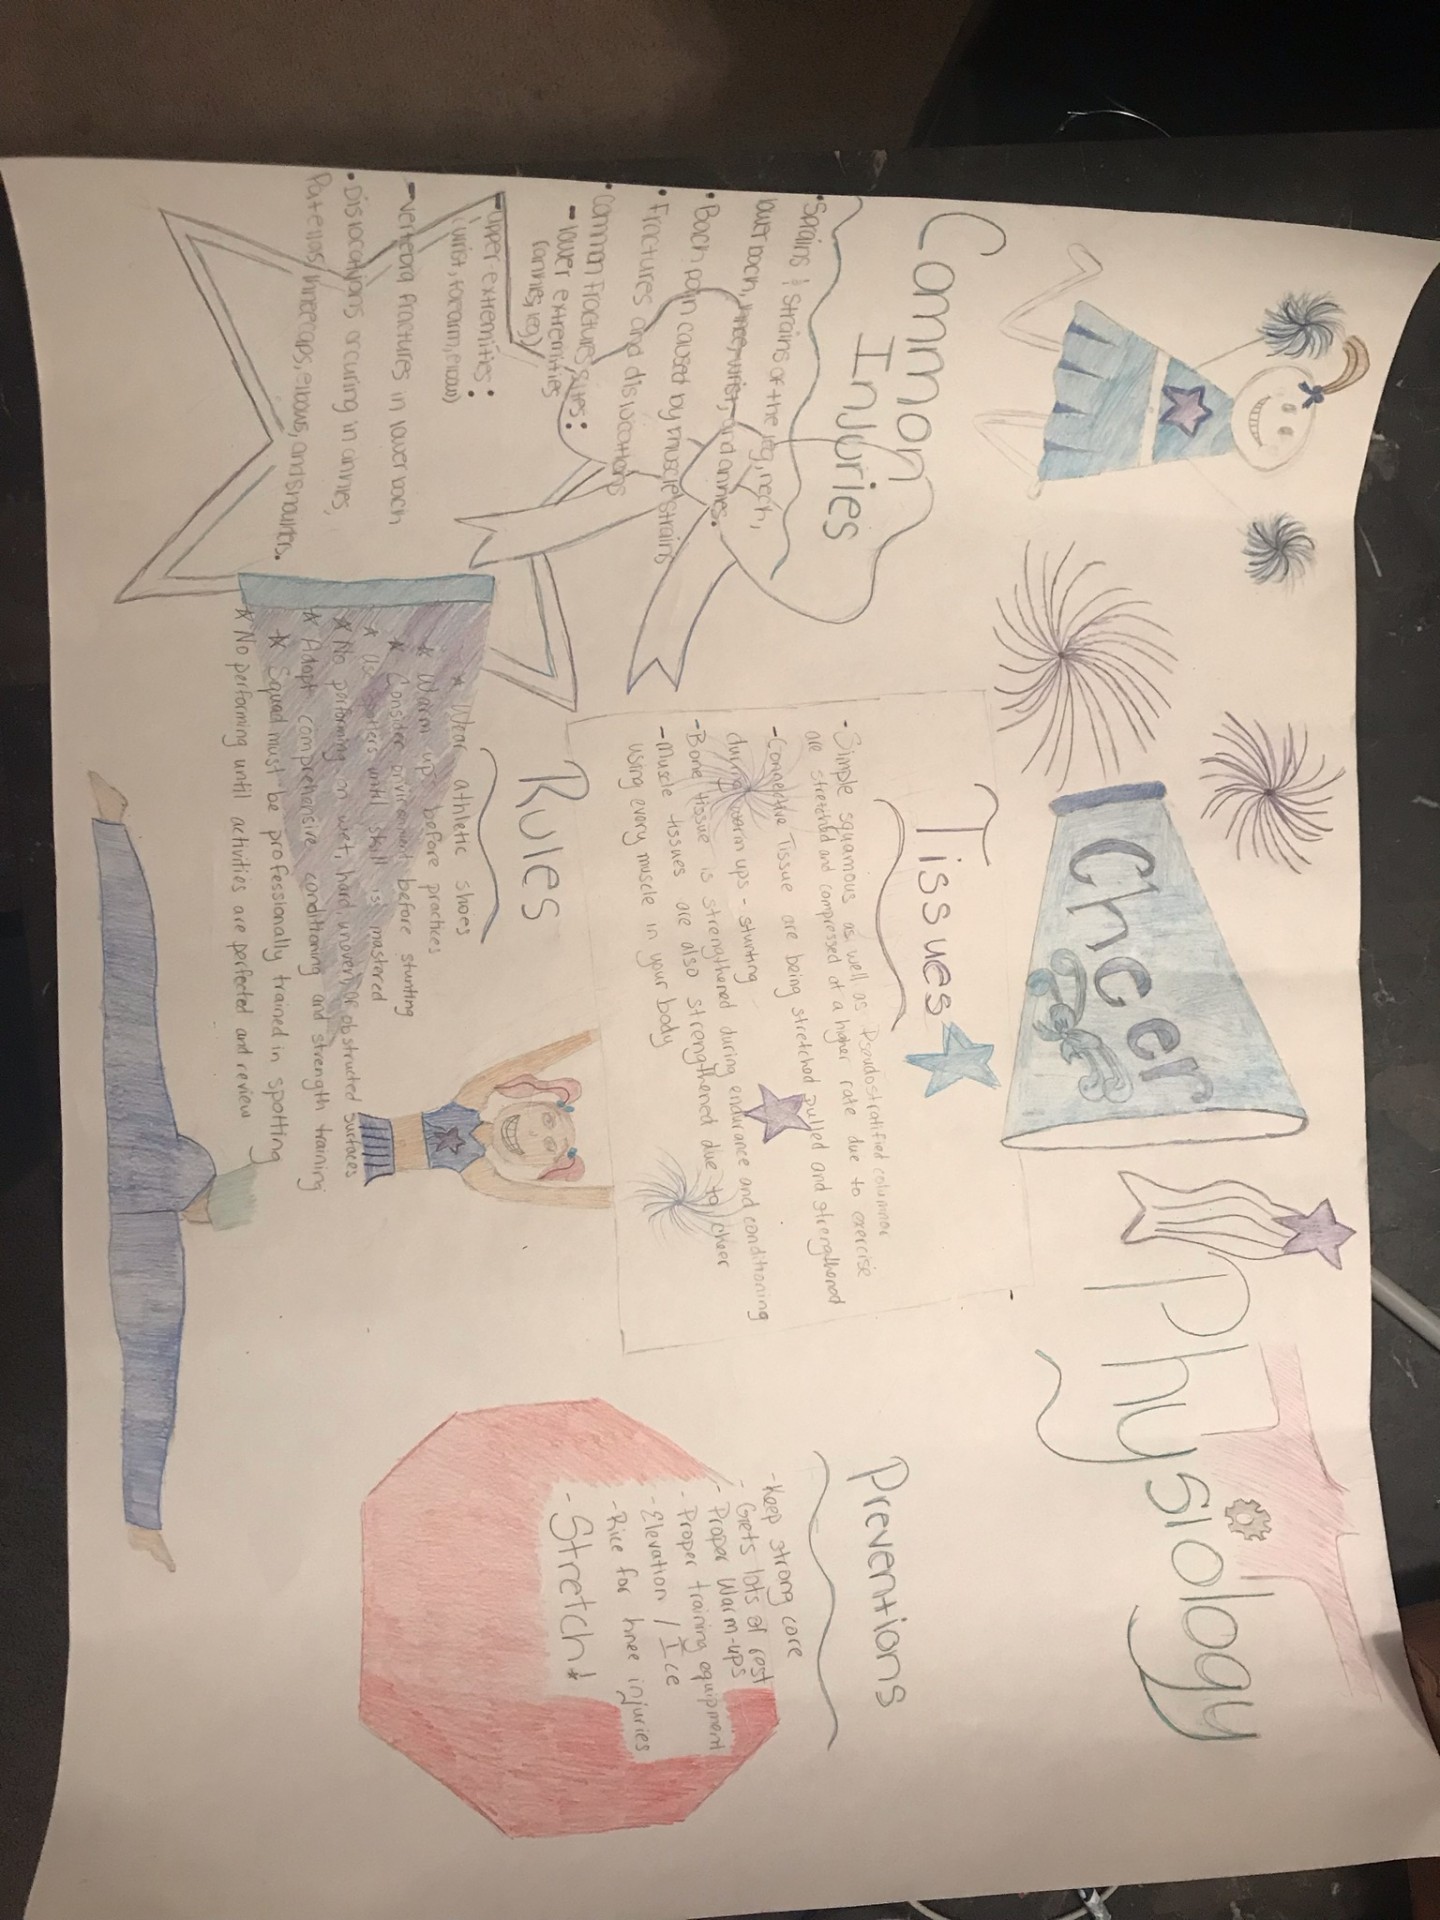 Cheer Physiology
Common
Injuries
• Sprains & strains of the leg, neck,
lower back, knee, wrist, and ankles.
• Back pain caused by muscle strains
• Fractures and dislocations
• Common Fractures sites:
- lower extremities
(ankles, leg)
- upper extremities:
(wrist, forearm, elbow)
- vertebra fractures in lower back
• Dislocations occuring in ankles,
Patellas/kneecaps, elbows, and shoulders.
Tissues
- Simple squamous as well as Pseudostratified columnar
are stretched and compressed at a higher rate due to exercise
- Connective Tissue are being stretched pulled and strengthened
during warm ups - stunting
- Bone tissue is strengthened during endurance and conditioning
- Muscle tissues are also strengthened due to cheer
using every muscle in your body
Rules
* Wear athletic shoes
* Warm up before practices
* Consider environment before stunting
* Use spotters until skill is mastered
* No performing on wet, hard, uneven or obstructed surfaces
* Adopt comprehensive conditioning and strength training
* Squad must be professionally trained in spotting
* No performing until activities are perfected and review
Preventions
- Keep strong core
- Gets lots of rest
- Proper Warm-ups
- Proper training equipment
- Elevation / Ice
- Rice for knee injuries
- Stretch!